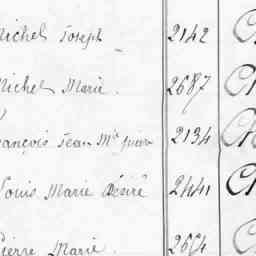 Michel Joseph 2142
Michel Marie. 2687
François Jean Mie pierre 2134
Louis Marie Désiré 2441
Pierre Marie. 2664